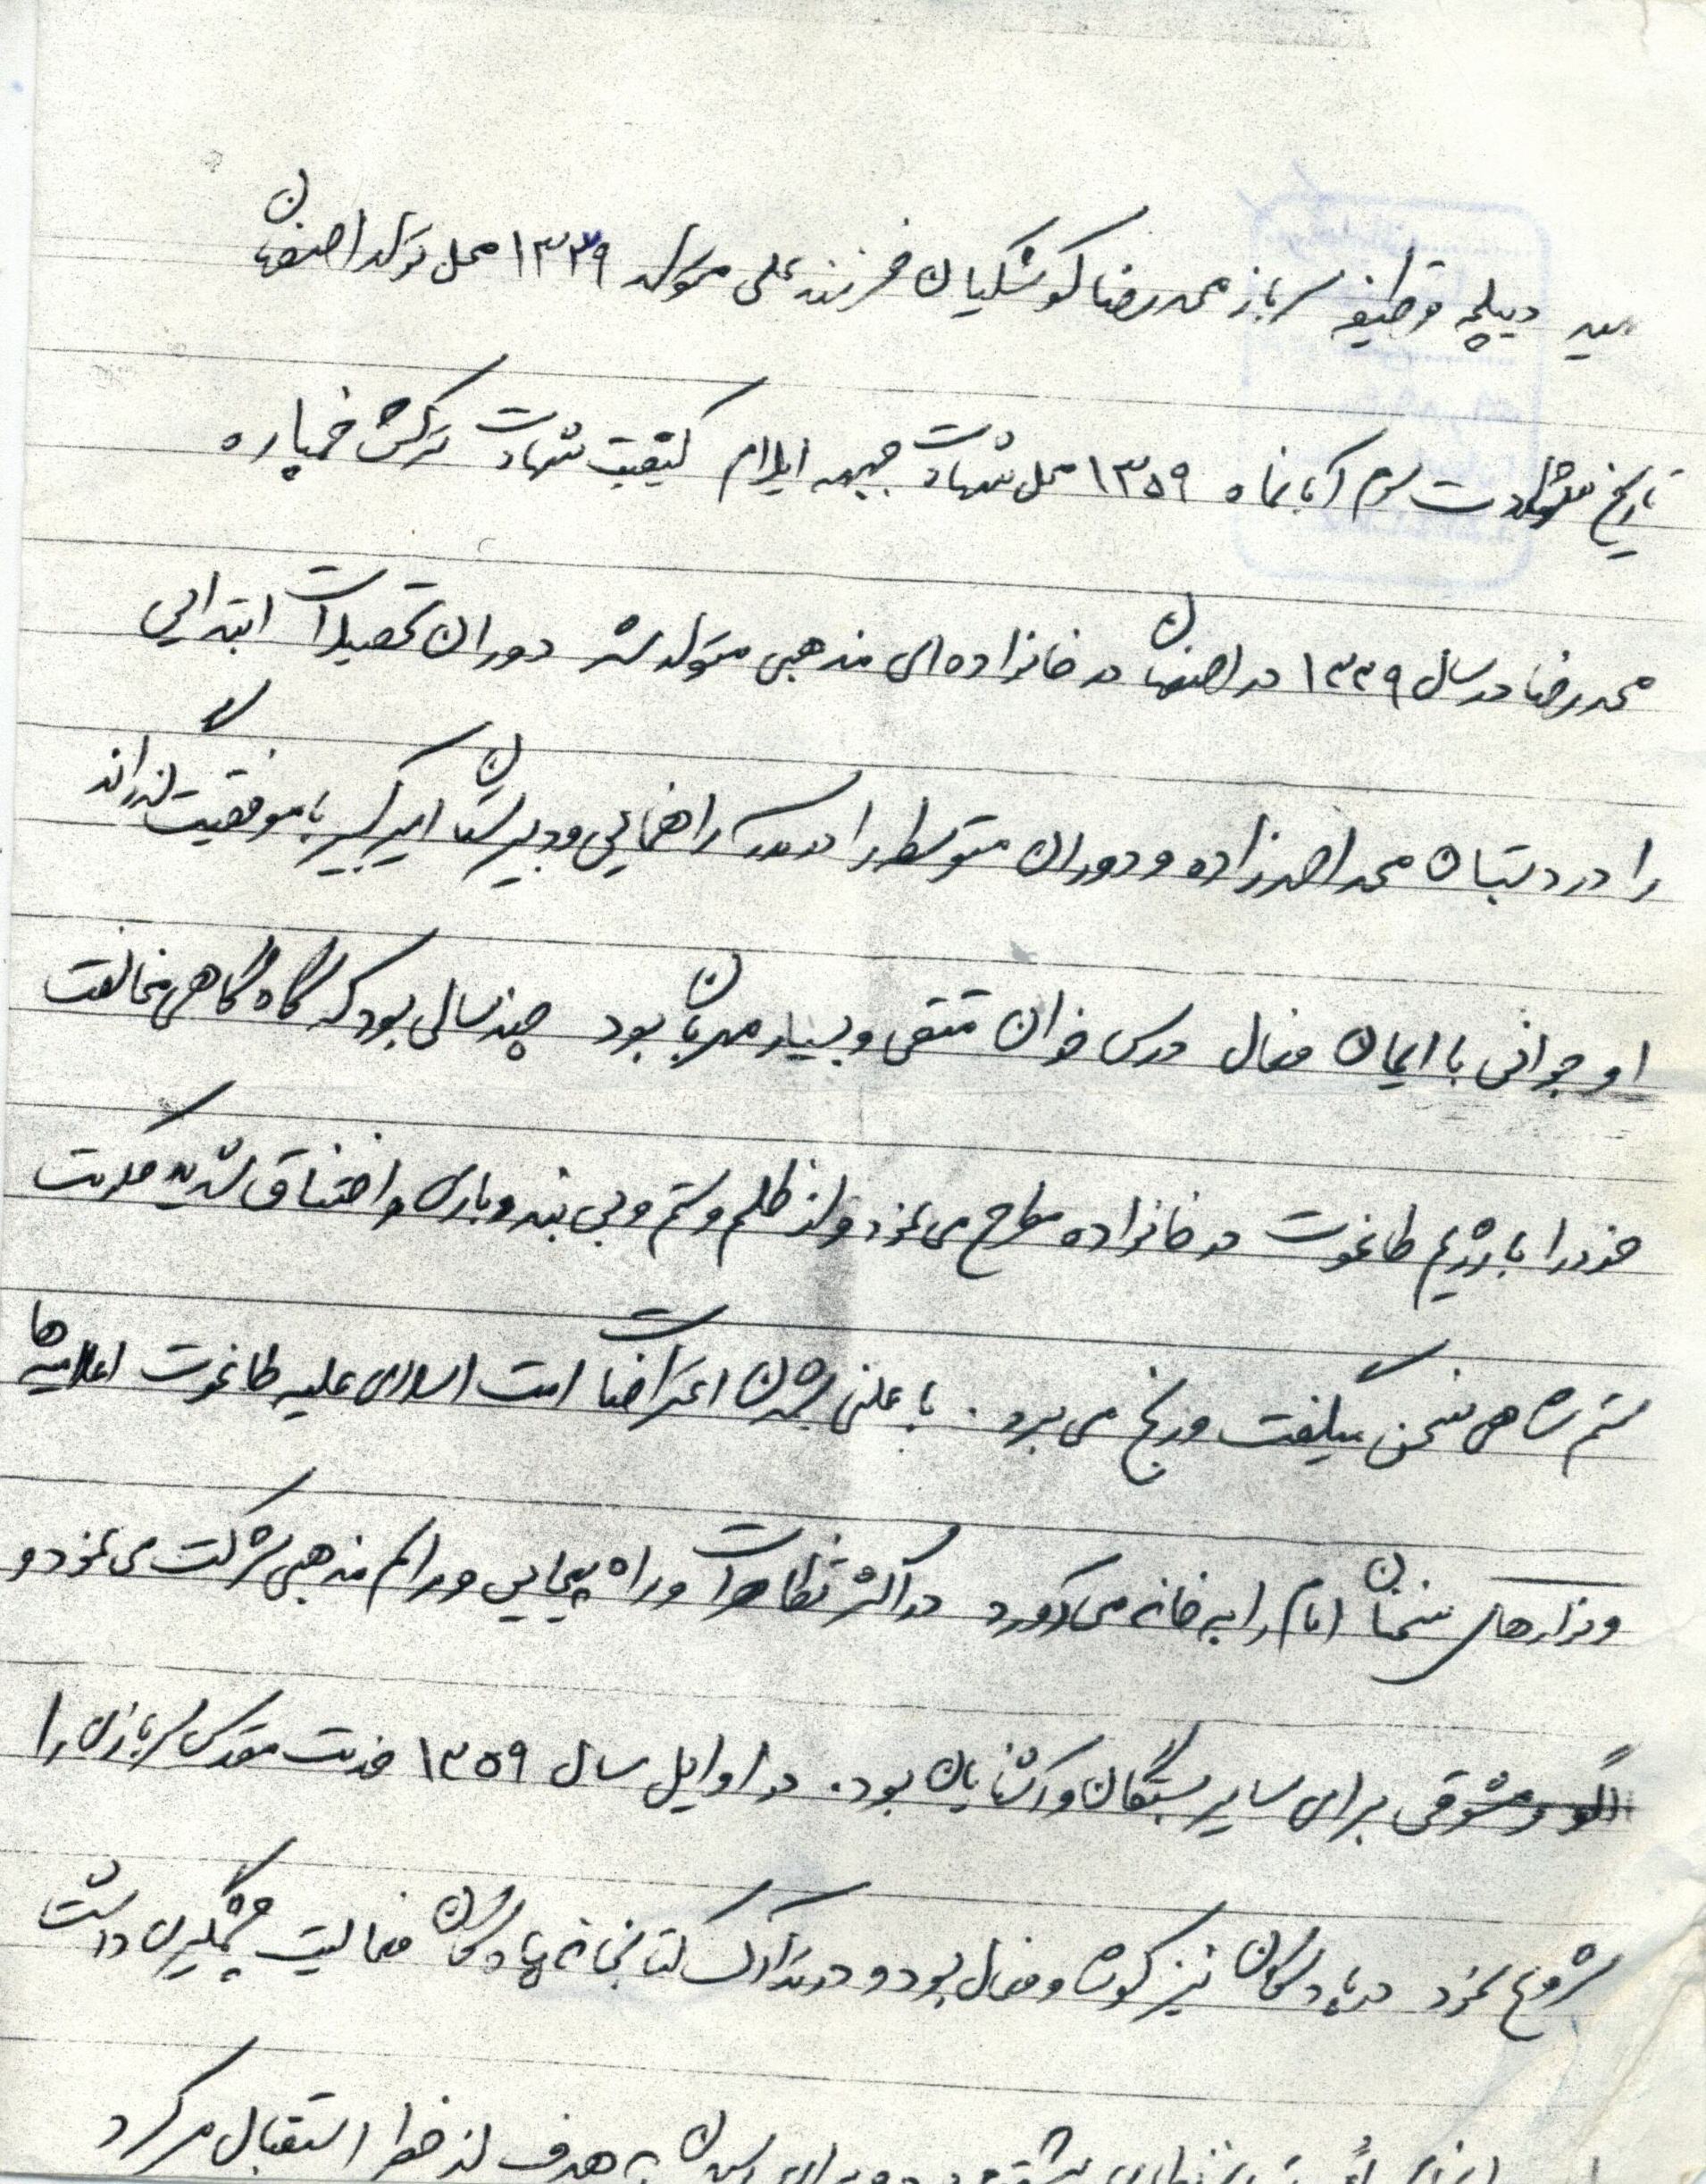 شهید دیپلمه وظیفه سرباز محمدرضا کوشکیان فرزند علی متولد ۱۳۳۹ محل تولد اصفهان
تاریخ شهادت سوم آبانماه ۱۳۵۹ محل شهادت جبهه ایلام کیفیت شهادت ترکش خمپاره
محمدرضا در سال ۱۳۳۹ در اصفهان در خانواده‌ای مذهبی متولد شد دوران تحصیلات ابتدایی
را در دبستان محمد احمدزاده و دوران متوسطه را در مدرسه راهنمایی و دبیرستان امیرکبیر با موفقیت گذراند
او جوانی با ایمان فعال درس خوان متقی و بسیار مهربان بود چند سالی بود که گاه و گاهی مخالفت
خود را با رژیم طاغوت در خانواده مطرح می نمود و از ظلم و ستم و بی بند و باری و اختناق شدید حکومت
ستم شاهی سخن میگفت و رنج می برد . با علنی شدن اعتراضات امت اسلامی علیه طاغوت اعلامیه ها
و نوارهای سخنان امام را به خانه می آورد در اکثر تظاهرات و راه پیمایی و مراسم مذهبی شرکت می نمود و
الگو و مشوقی برای سایر بستگان و آشنایان بود . در اوایل سال ۱۳۵۹ خدمت مقدس سربازی را
شروع نمود در پادگان نیز کوشا و فعال بود و در تدارک کتابخانه پادگان فعالیت چشمگیری داشت
برای رسیدن به هدف از خطر استقبال میکرد